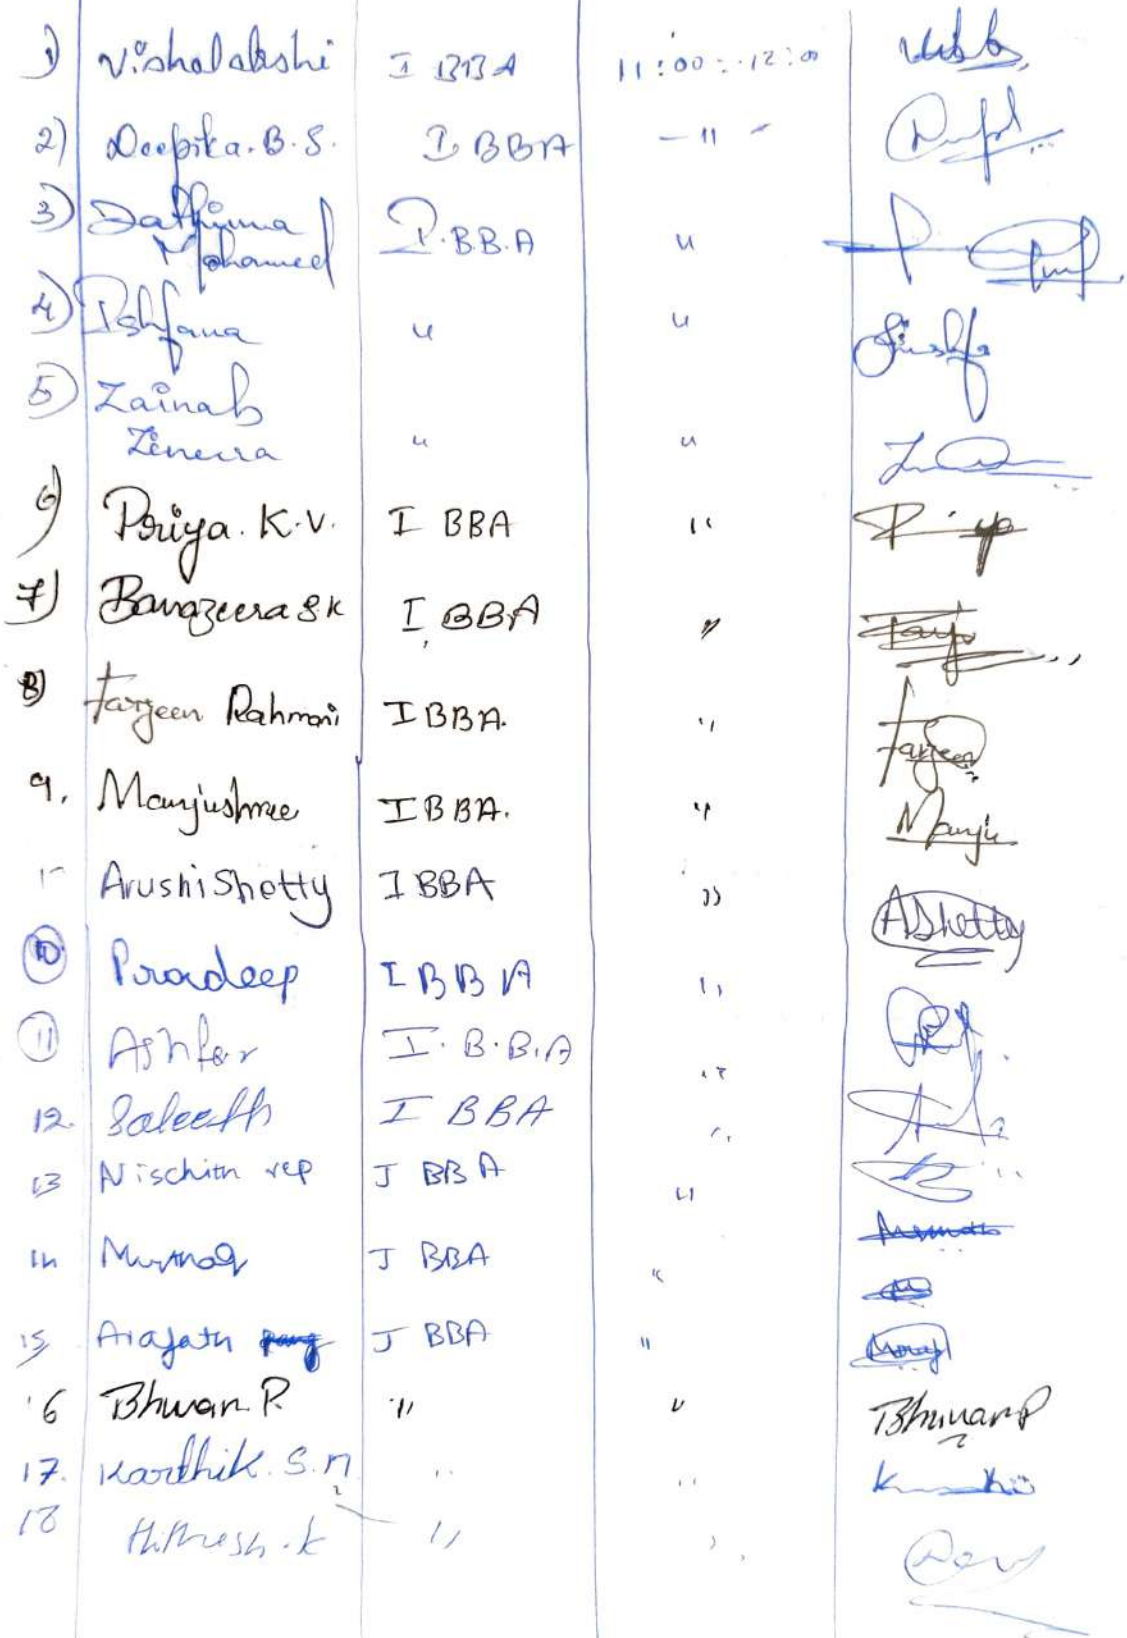 1) Vishalakshi I BBA 11:00 - 12:00
2) Deepika. B. S. I BBA — 11 -
3) Fathima I.B.B.A "
Mohamed
4) Ishfana " "
5) Zainab
Zeneera " "
6) Priya. K.V. I BBA " Priya
7) Banazeera S K I BBA "
8) Farzeen Rahmani I BBA. " Farzeen
9. Manjushree I BBA. " Manju
Arushi Shetty I BBA " AShetty
10 Pradeep I BBA "
11 Ashfer I. B.B.A "
12. Saleeth I BBA "
13 Nischith rep I BBA "
14 I BBA "
15, Arafath I BBA "
16 Bhuvan. P. " " Bhuvan P
17. Karthik. S. M " "
18 Hithesh. K " "